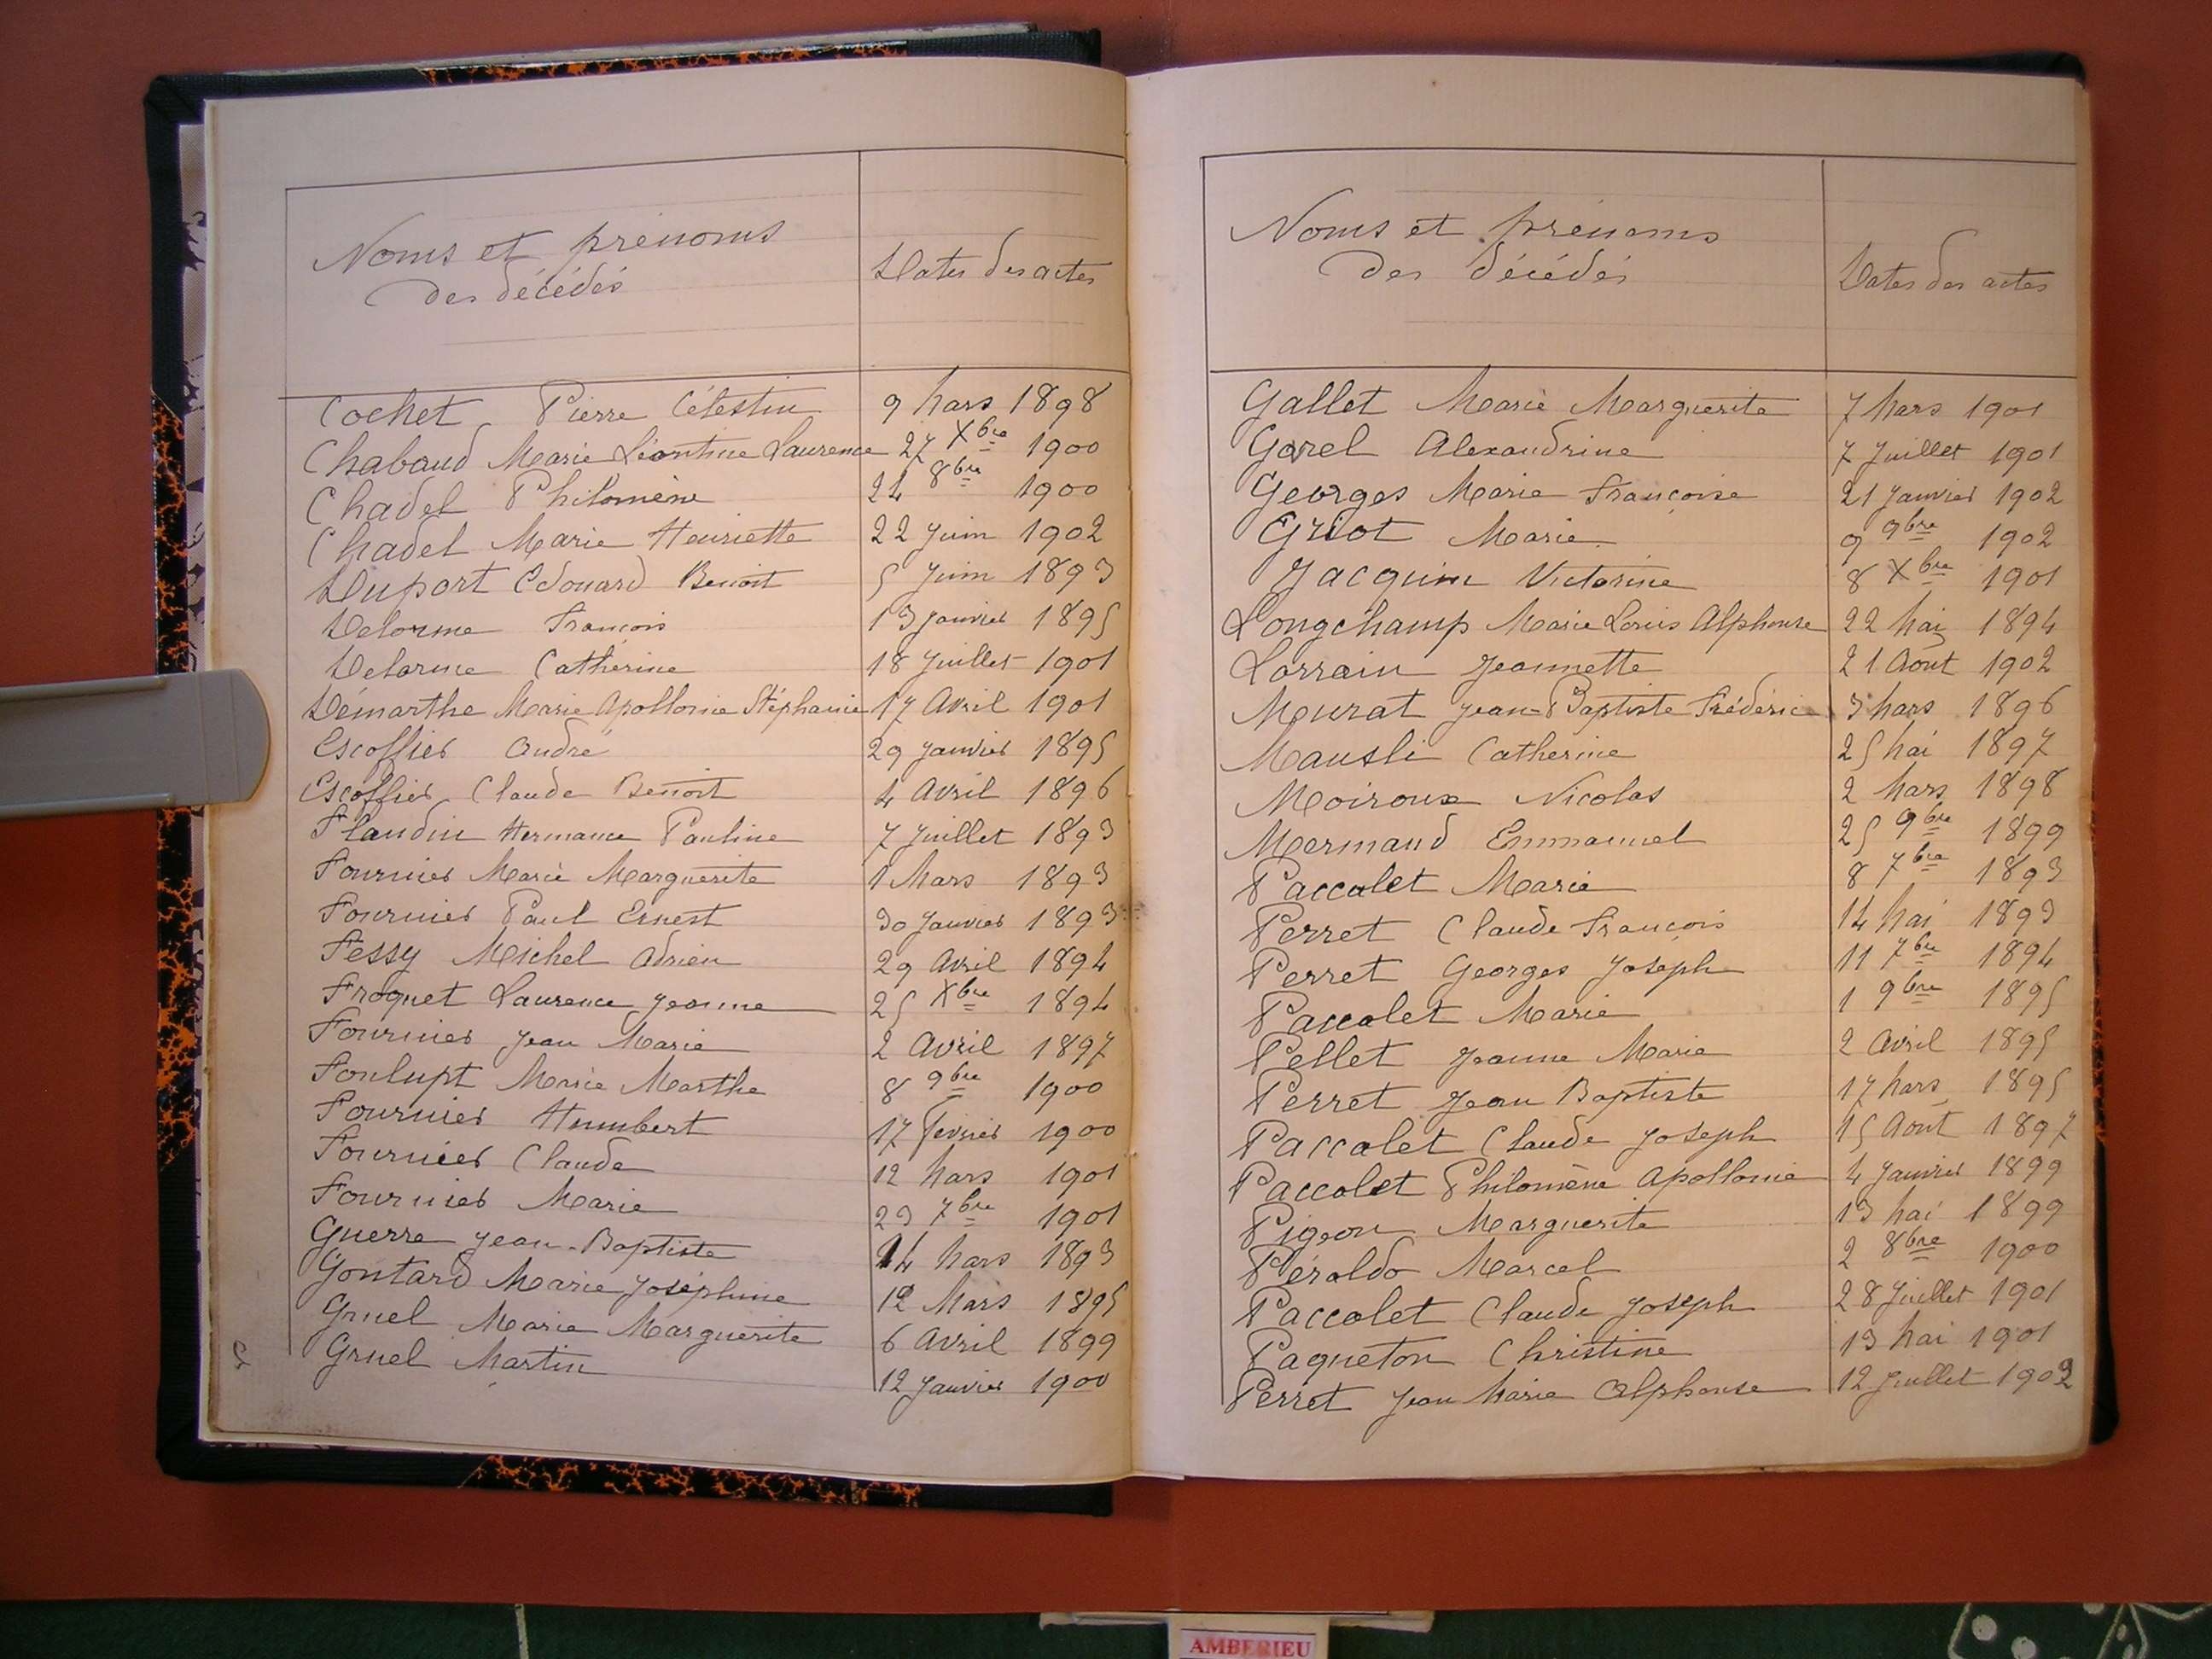 Noms et prénoms
des décédés
Dates des actes
Cochet Pierre Célestin 9 Mars 1898
Chabaud Marie Léontine Laurence 27 Xbre 1900
Chadel Philomène 24 8bre 1900
Chadel Marie Henriette 22 Juin 1902
Duport Edouard Benoit 5 Juin 1893
Delorme François 13 Janvier 1895
Delorme Catherine 18 Juillet 1901
Démarthe Marie Apollonie Stéphanie 17 Avril 1901
Escoffier André 29 Janvier 1895
Escoffier Claude Benoit 4 Avril 1896
Flandin Hermance Pauline 7 Juillet 1893
Fournier Marie Marguerite 1 Mars 1893
Fournier Paul Ernest 30 Janvier 1893
Fessy Michel Adrien 29 Avril 1894
Froquet Laurence Jeanne 25 Xbre 1894
Fournier Jean Marie 2 Avril 1897
Foulupt Marie Marthe 8 9bre 1900
Fournier Humbert 17 Fevrier 1900
Fournier Claude 12 Mars 1901
Fournier Marie 23 7bre 1901
Guerre Jean-Baptiste 14 Mars 1893
Gontard Marie Joséphine 12 Mars 1895
Gruel Marie Marguerite 6 Avril 1899
Gruel Martin 12 Janvier 1900
Noms et prénoms
des décédés
Dates des actes
Gallet Marie Marguerite 7 Mars 1901
Garel Alexandrine 7 Juillet 1901
Georges Marie Françoise 21 Janvier 1902
Griot Marie 9 9bre 1902
Jacquin Victorine 8 Xbre 1901
Longchamp Marie Louis Alphonse 22 Mai 1894
Lorrain Jeannette 21 Août 1902
Murat Jean-Baptiste Frédéric 3 Mars 1896
Mausli Catherine 25 Mai 1897
Moiroux Nicolas 2 Mars 1898
Mermand Emmanuel 25 9bre 1899
Paccalet Marie 8 7bre 1893
Perret Claude François 14 Mai 1893
Perret Georges Joseph 11 7bre 1894
Paccolet Marie 1 9bre 1895
Pellet Jeanne Marie 2 Avril 1895
Perret Jean Baptiste 17 Mars 1895
Paccalet Claude Joseph 15 Août 1897
Paccolet Philomène Apollonie 4 Janvier 1899
Pigeon Marguerite 13 Mai 1899
Péraldo Marcel 2 8bre 1900
Paccolet Claude Joseph 28 Juillet 1901
Paqueton Christine 13 Mai 1901
Perret Jean Marie Alphonse 12 Juillet 1902
AMBERIEU